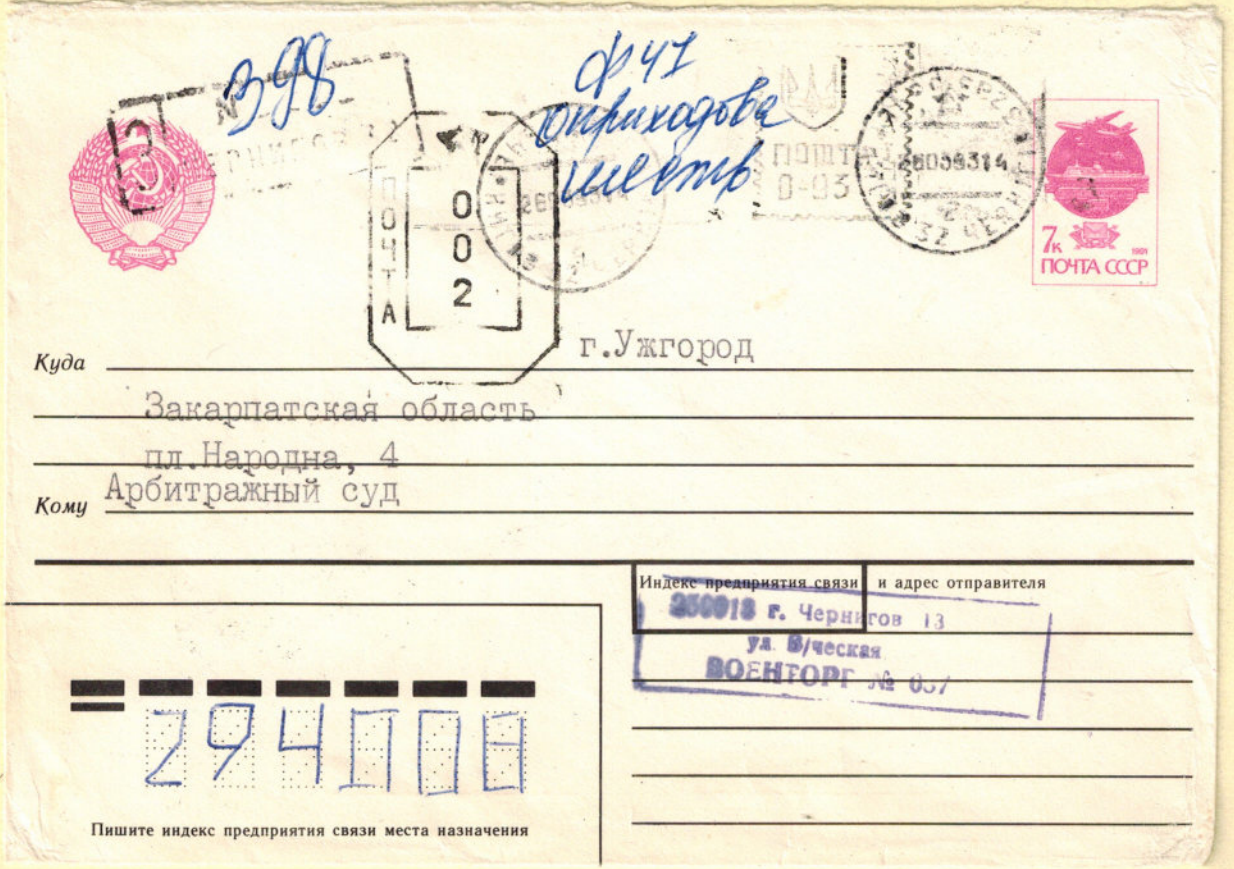 398
ф 47
оприходова
шеств
ПОЧТА
002
ПОШТА
0-93
7к
1991
ПОЧТА СССР
г.Ужгород
Куда
Закарпатская область
пл.Народна, 4
Кому Арбитражный суд
Индекс предприятия связи и адрес отправителя
250013 г. Чернигов 13
ул. В/ческая
ВОЕНТОРГ №
294008
Пишите индекс предприятия связи места назначения